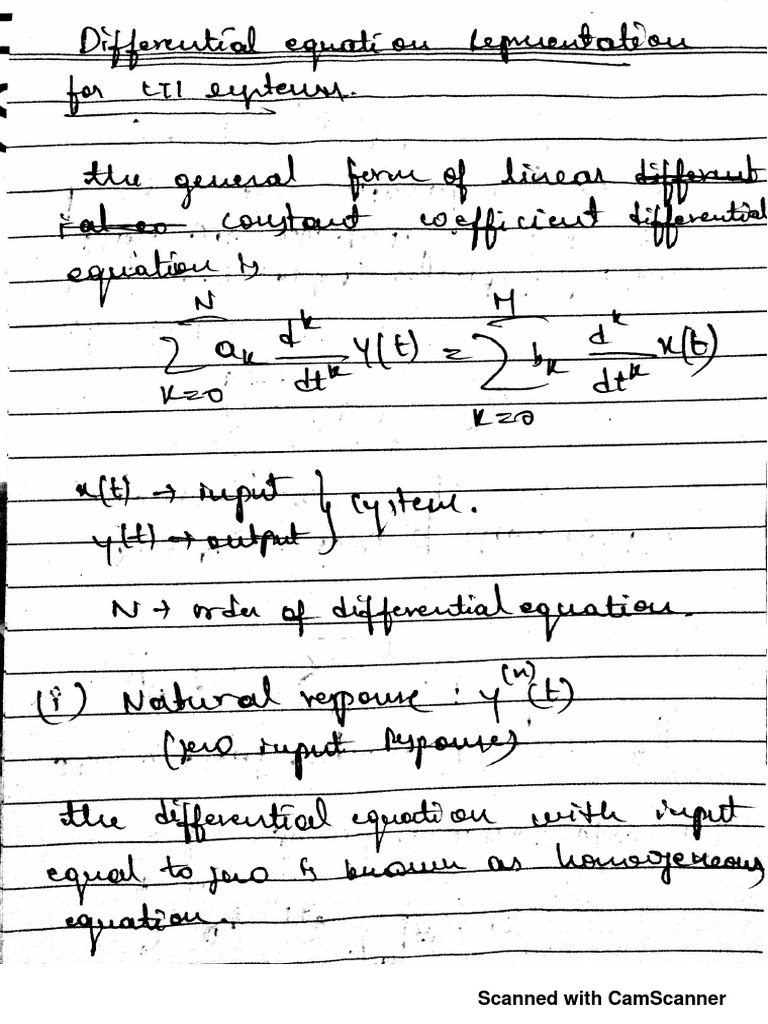 Differential equation representation
for LTI systems.
the general form of linear different
ial eo constant coefficient differential
equation is
N M
∑ aₖ dᵏ/dtᵏ y(t) = ∑ bₖ dᵏ/dtᵏ x(t)
K=0 K=0
x(t) → input } system.
y(t) → output
N → order of differential equation.
(i) Natural response : y⁽ⁿ⁾(t)
(zero input response)
the differential equation with input
equal to zero is known as homogeneous
equation.
Scanned with CamScanner